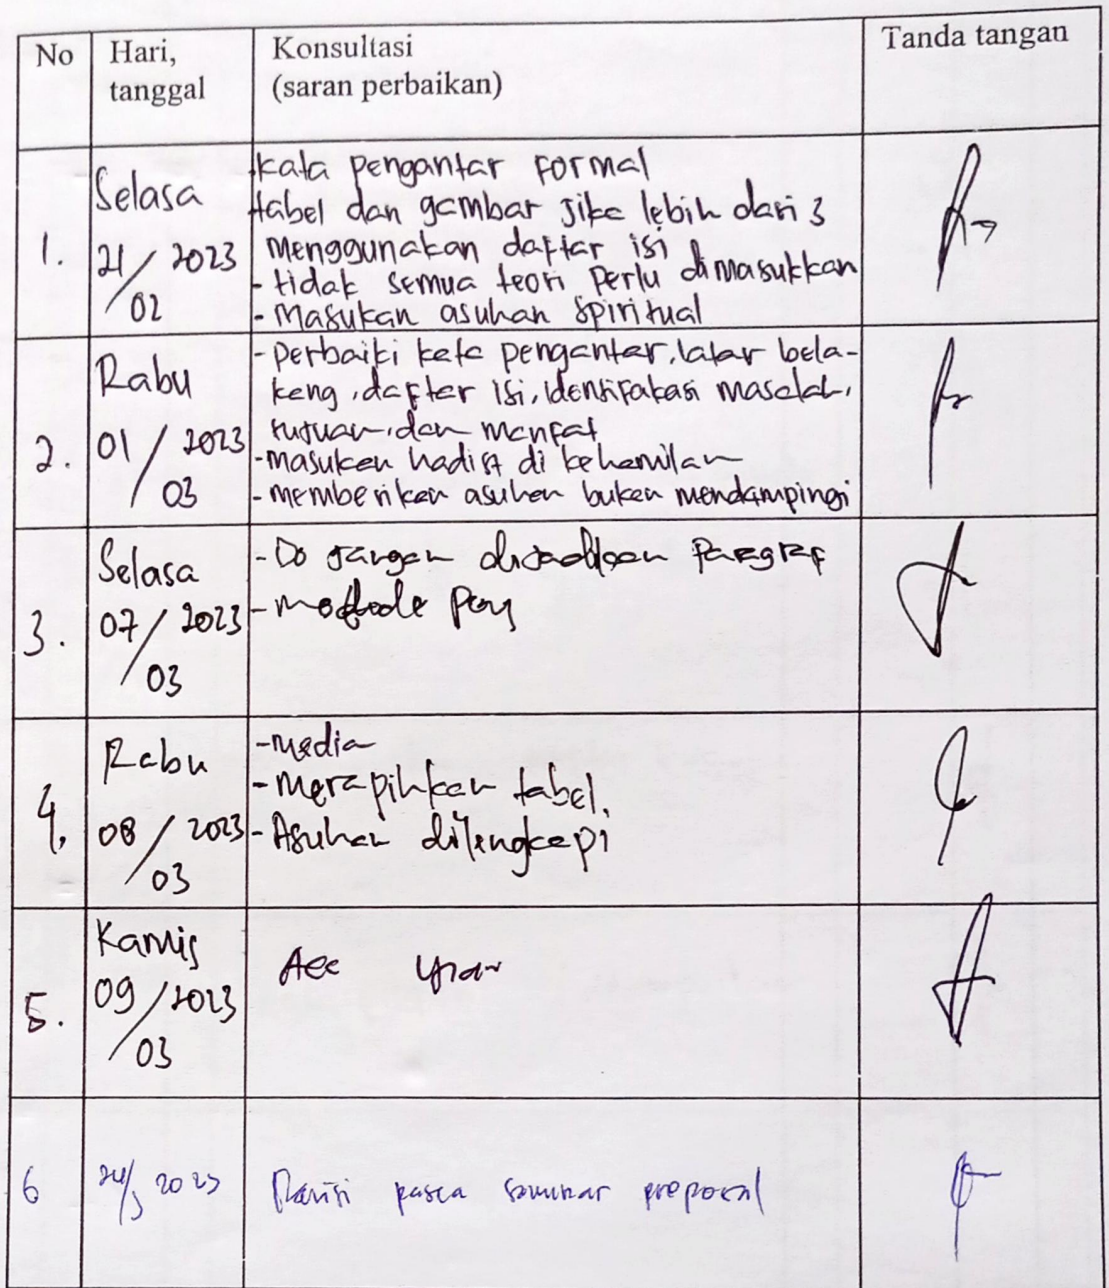 No
Hari,
tanggal
Konsultasi
(saran perbaikan)
Tanda tangan
1.
Selasa
21/02 2023
kata pengantar Formal
tabel dan gambar jika lebih dari 3
menggunakan daftar isi
- tidak semua teori perlu dimasukkan
- Masukan asuhan spiritual
2.
Rabu
01/03 2023
- perbaiki kata pengantar, latar bela-
kang, daftar isi, identifakasi masalah,
tujuan, dan manfat
- masukan hadist di kehamilan
- memberikan asuhan bukan mendampingi
3.
Selasa
07/03 2023
- Do jangan dijadikan Paragraf
- metode
4.
Rabu
08/03 2023
- media
- merapihkan tabel.
- Asuhan dilengkapi
5.
Kamis
09/03 2023
Acc
6
24/3 2023
Revisi pasca seminar proposal